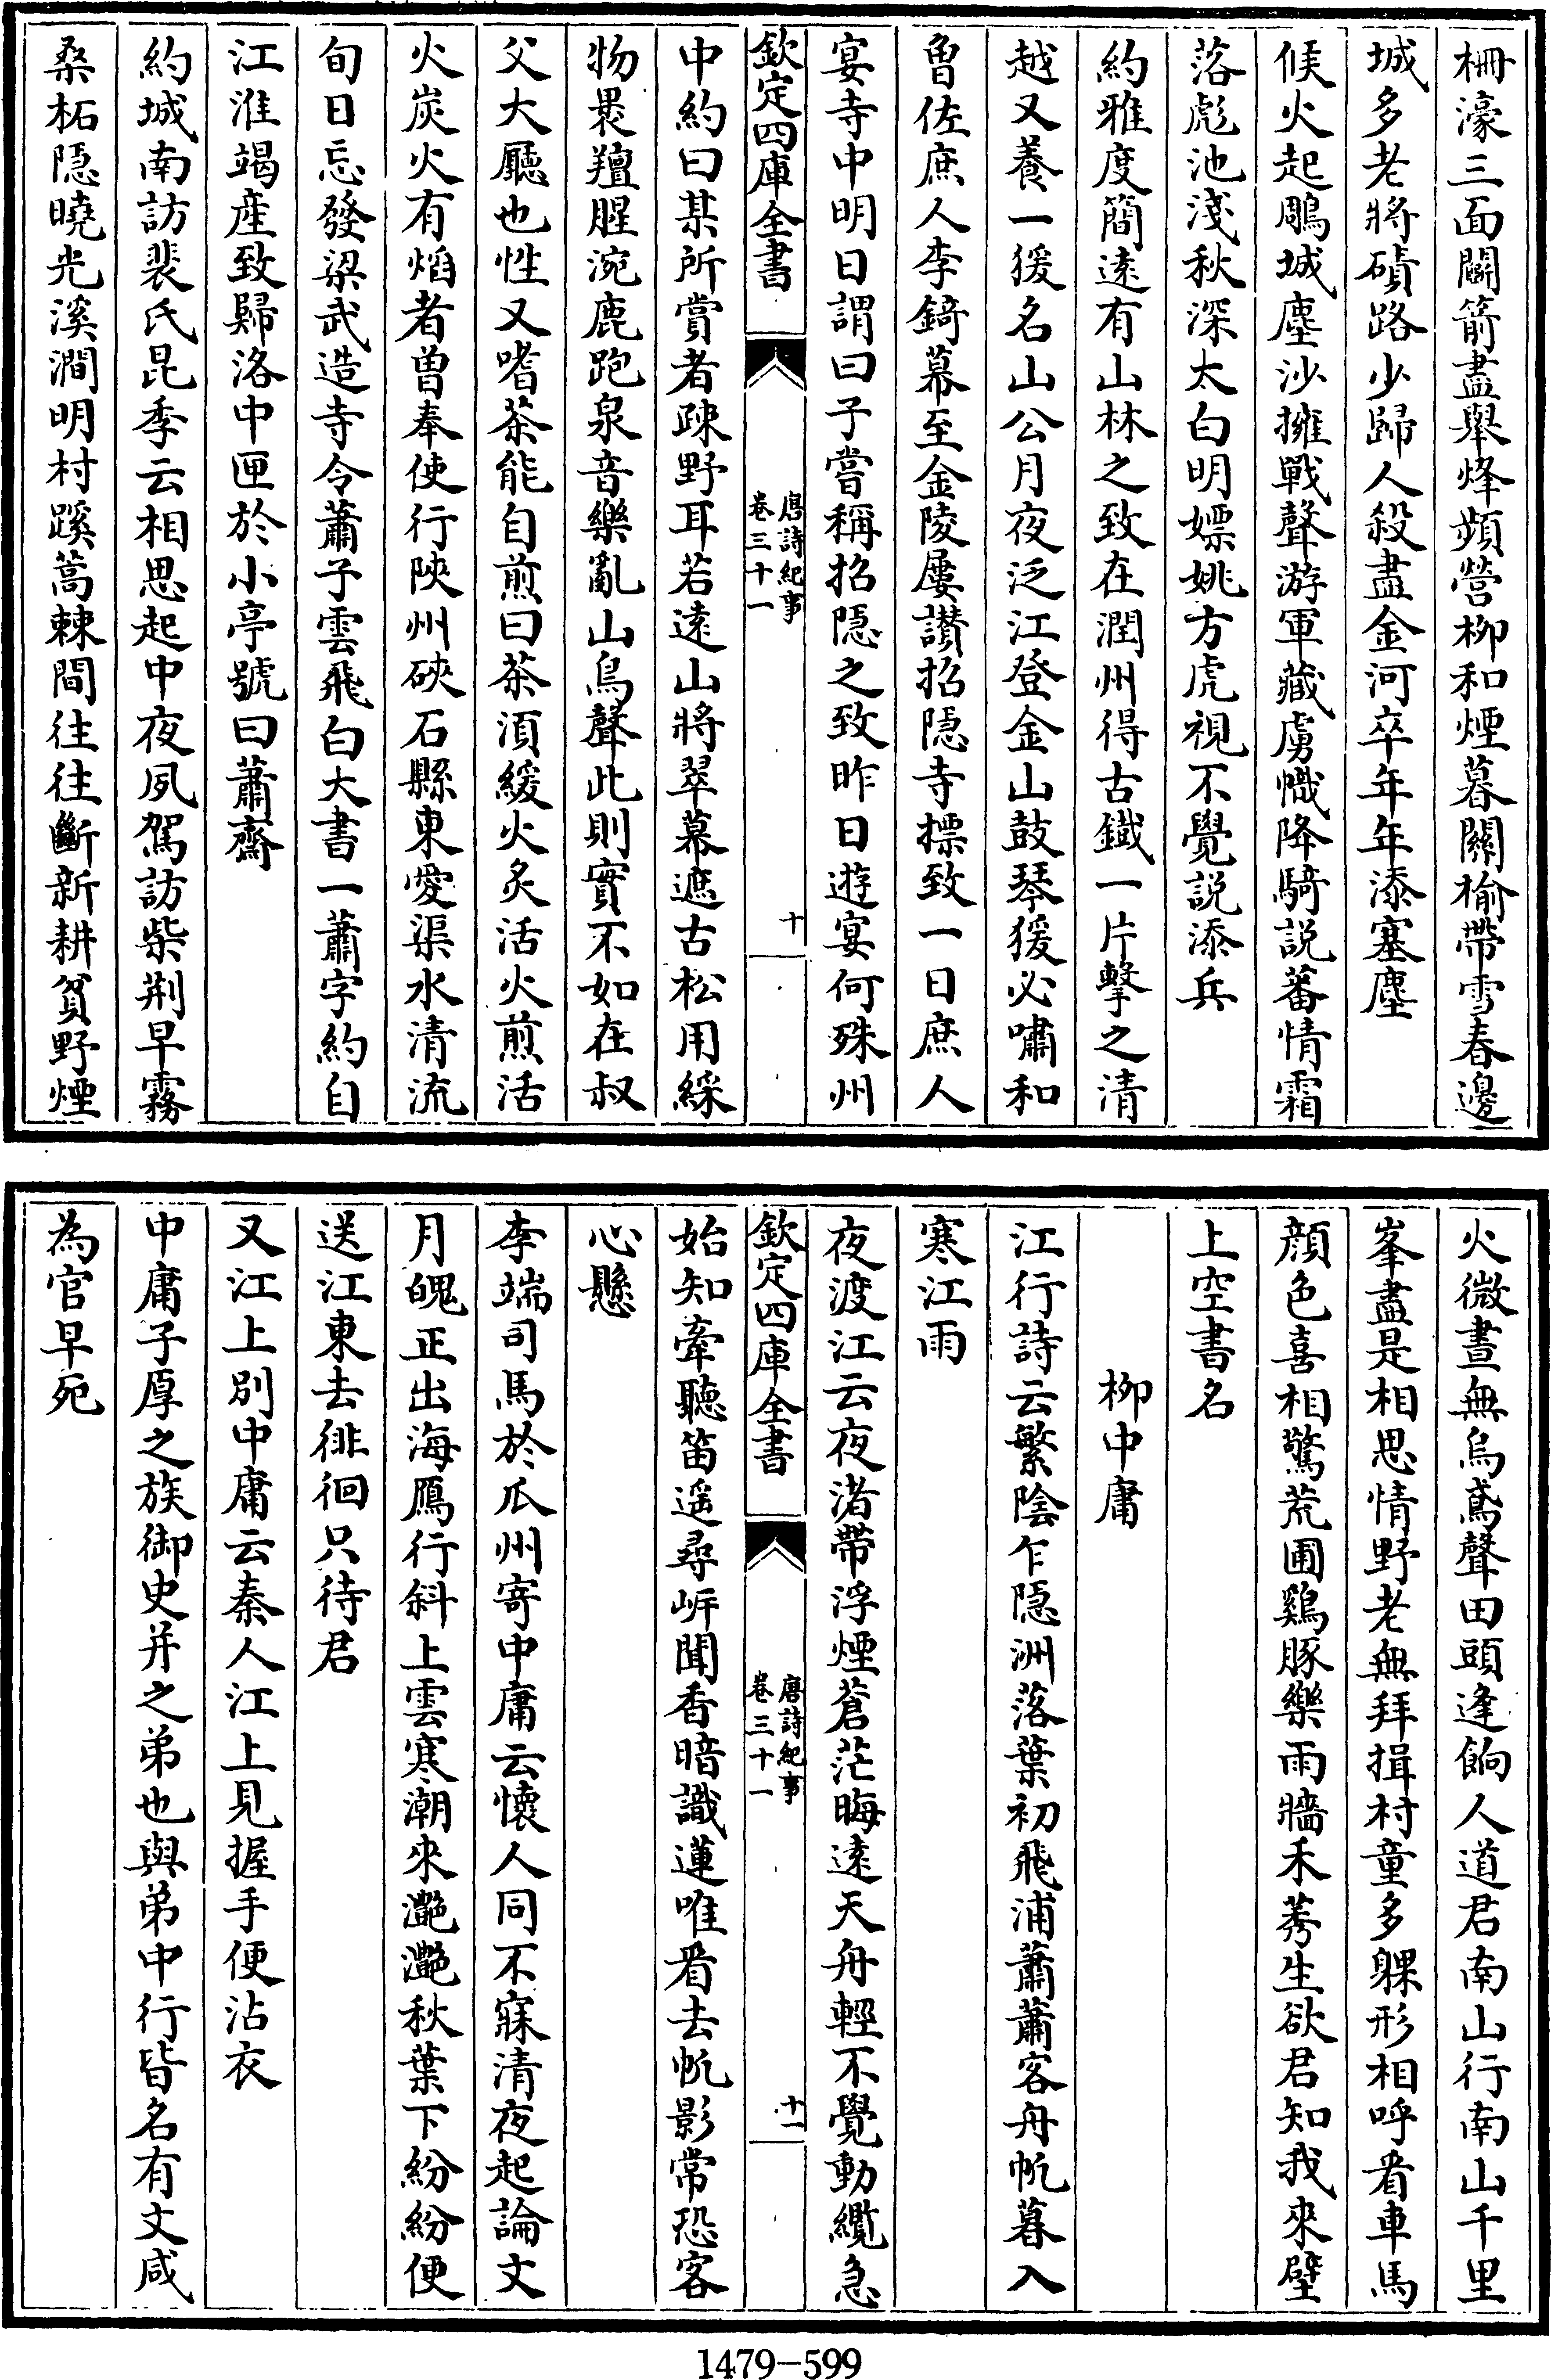 柵濠三面鬬箭盡舉烽頻營柳和煙暮關榆帶雪春邊
城多老將磧路少歸人殺盡金河卒年年添塞塵
候火起鵰城塵沙擁戰聲游軍藏虜幟降騎説蕃情霜
落㴲池淺秋深太白明嫖姚方虎視不覺説添兵
約雅度簡遠有山林之致在潤州得古鐵一片擊之清
越又養一猨名山公月夜泛江登金山鼓琴猨必嘯和
曾佐庶人李錡幕至金陵屢讃招隠寺摽致一日庶人
宴寺中明日謂曰子嘗稱招隠之致昨日遊宴何殊州
欽定四庫全書
唐詩紀事
卷三十一
十
中約曰某所賞者疎野耳若逺山將翠幕遮古松用綵
物褁羶腥涴鹿跑泉音樂亂山鳥聲此則實不如在叔
父大廳也性又嗜茶能自煎曰茶須緩火炙活火煎活
火炭火有熖者曾奉使行陜州硤石縣東愛渠水清流
旬日忘發梁武造寺令蕭子雲飛白大書一蕭字約自
江淮竭産致歸洛中匣於小亭號曰蕭齋
約城南訪裴氏昆季云相思起中夜夙駕訪柴荆早霧
桑柘隠曉光溪澗明村蹊蒿棘間往往斷新耕貧野煙
火微晝無烏鳶聲田頭逢餉人道君南山行南山千里
峯盡是相思情野老無拜揖村童多躶形相呼看車馬
顔色喜相驚荒圃鷄豚樂雨牆禾莠生欲君知我來壁
上空書名
柳中庸
江行詩云繁陰乍隠洲落葉初飛浦蕭蕭客舟帆暮入
寒江雨
夜渡江云夜渚帶浮煙蒼茫晦逺天舟輕不覺動纜急
欽定四庫全書
唐詩紀事
卷三十一
十一
始知牽聽笛遥尋岍聞香暗識蓮唯看去帆影常恐客
心懸
李端司馬於瓜州寄中庸云懐人同不寐清夜起論文
月魄正出海鴈行斜上雲寒潮來灔灔秋葉下紛紛便
送江東去徘徊只待君
又江上別中庸云秦人江上見握手便沾衣
中庸子厚之族御史并之弟也與弟中行皆名有文咸
為官早死
1479-599